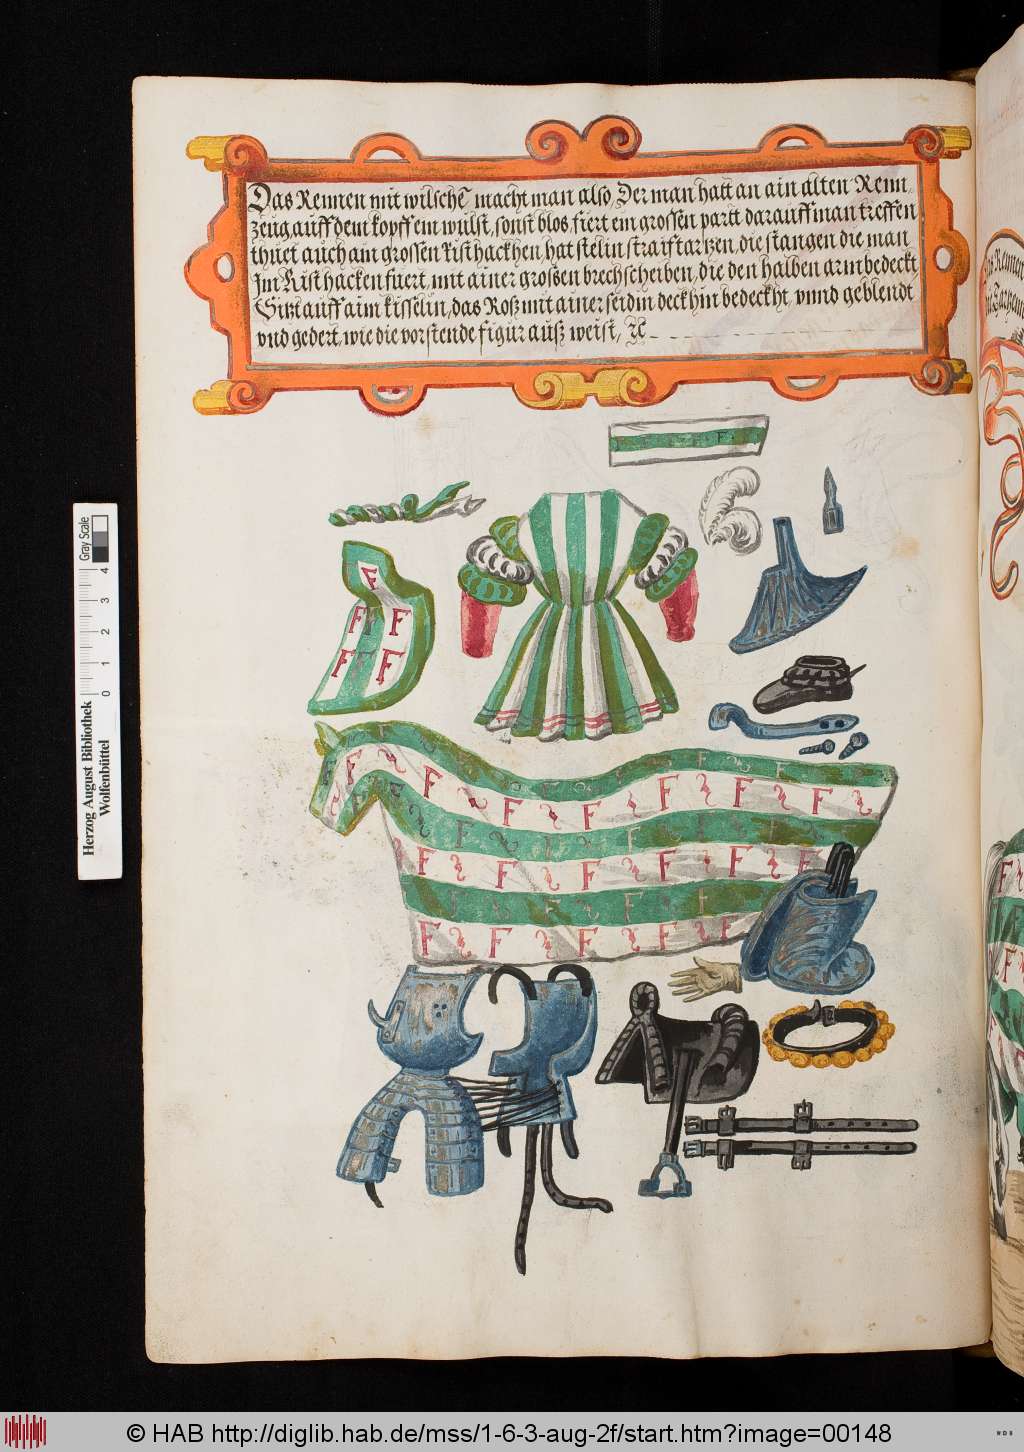 Das Rennen mit wilsche͂ macht man also, Der man hatt an ain alten Renn,
zeug, auff dem kopff ein wulst, sonst blos, fiert ein grossen partt darauff man treffen
thuet auch ain grossen Risthackhen, hat stelin straiftartzen, die stangen die man
Im Risthacken fuert, mit ainer grossen brechscheiben, die den halben arm bedeckt
Sitzt auff aim kisselin, das Roß mit ainer seidin deckhin bedeckht, vnnd geblendt
vnd gedert, wie die vorstende figur auß weist, ꝛc
F
F F
F F
F F F F F F F
F F F F F F
F F F F F
Gray Scale
0 1 2 3 4
Herzog August Bibliothek
Wolfenbüttel
© HAB http://diglib.hab.de/mss/1-6-3-aug-2f/start.htm?image=00148